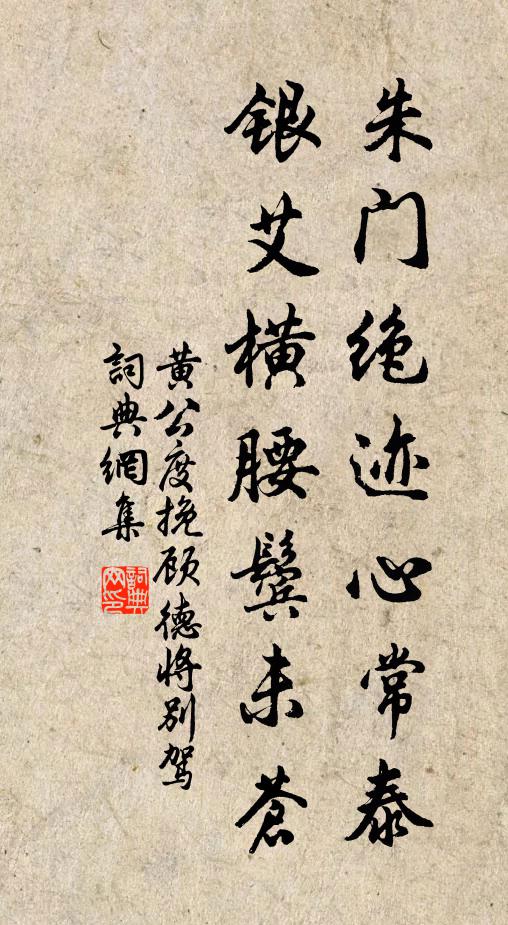 朱门绝迹心常泰
银艾横腰鬓未苍
黄公度挽顾德将别驾
词典网集
詞典
网印